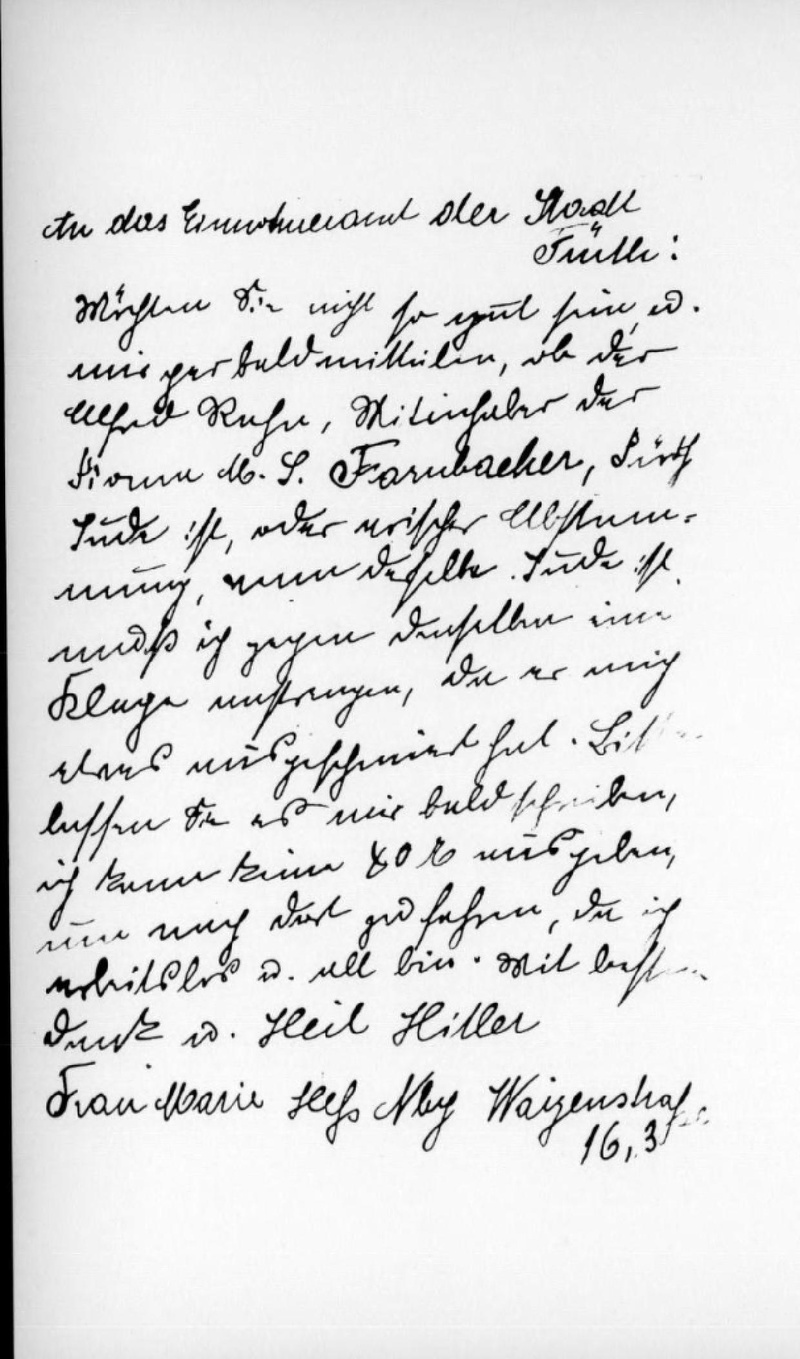 An das Einwohneramt der Stadt
Fürth:
Möchten Sie nicht so gut sein, u.
mir per bald mitteilen, ob der
Alfred Kuhn, Mitinhaber der
Firma M. S. Farnbacher, Fürth
Jude ist, oder arischer Abstam-
mung, wenn derselbe Jude ist
muß ich gegen denselben eine
Klage anstrengen, da er mich
etwas ausgeschmiert hat. Bitte
lassen Sie es mir bald schreiben,
ich kann keine 80 ausgeben,
um nach dort zu fahren, da ich
arbeitslos u. alt bin. Mit best
Dank u. Heil Hitler
Frau Marie Hess Nbg Waizenstraße
16, 3